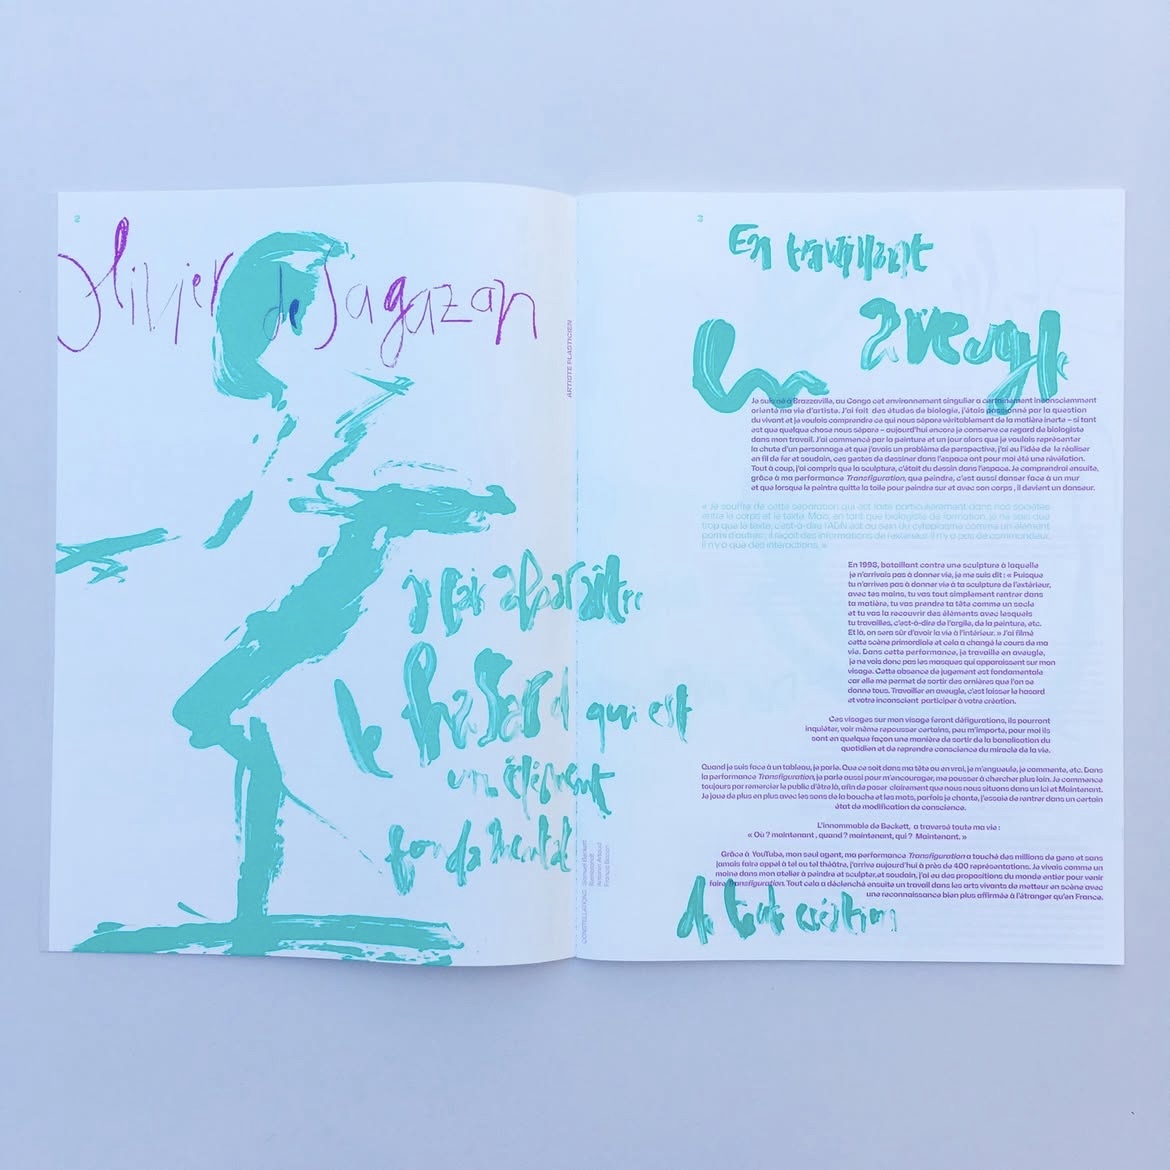 2
Olivier de Sagazan
ARTISTE PLASTICIEN
je fais apparaître
le hasard qui est
un élément
fondamental
CONSTELLATIONS
Samuel Beckett
Rembrandt
Antonin Artaud
Francis Bacon
3
En travaillant
en aveugle
Je suis né à Brazzaville, au Congo cet environnement singulier a certainement inconsciemment
orienté ma vie d'artiste. J'ai fait des études de biologie, j'étais passionné par la question
du vivant et je voulais comprendre ce qui nous sépare véritablement de la matière inerte – si tant
est que quelque chose nous sépare – aujourd'hui encore je conserve ce regard de biologiste
dans mon travail. J'ai commencé par la peinture et un jour alors que je voulais représenter
la chute d'un personnage et que j'avais un problème de perspective, j'ai eu l'idée de le réaliser
en fil de fer et soudain, ces gestes de dessiner dans l'espace ont pour moi été une révélation.
Tout à coup, j'ai compris que la sculpture, c'était du dessin dans l'espace. Je comprendrai ensuite,
grâce à ma performance Transfiguration, que peindre, c'est aussi danser face à un mur
et que lorsque le peintre quitte la toile pour peindre sur et avec son corps, il devient un danseur.
« Je souffre de cette séparation qui est faite particulièrement dans nos sociétés
entre le corps et le texte. Mais, en tant que biologiste de formation, je ne sais que
trop que le texte, c'est-à-dire l'ADN est au sein du cytoplasme comme un élément
parmi d'autres ; il reçoit des informations de l'extérieur. Il n'y a pas de commandeur,
il n'y a que des interactions. »
En 1998, bataillant contre une sculpture à laquelle
je n'arrivais pas à donner vie, je me suis dit : « Puisque
tu n'arrives pas à donner vie à ta sculpture de l'extérieur,
avec tes mains, tu vas tout simplement rentrer dans
ta matière, tu vas prendre ta tête comme un socle
et tu vas la recouvrir des éléments avec lesquels
tu travailles, c'est-à-dire de l'argile, de la peinture, etc.
Et là, on sera sûr d'avoir la vie à l'intérieur. » J'ai filmé
cette scène primordiale et cela a changé le cours de ma
vie. Dans cette performance, je travaille en aveugle,
je ne vois donc pas les masques qui apparaissent sur mon
visage. Cette absence de jugement est fondamentale
car elle me permet de sortir des ornières que l'on se
donne tous. Travailler en aveugle, c'est laisser le hasard
et votre inconscient participer à votre création.
Ces visages sur mon visage feront défigurations, ils pourront
inquiéter, voir même repousser certains, peu m'importe, pour moi ils
sont en quelque façon une manière de sortir de la banalisation du
quotidien et de reprendre conscience du miracle de la vie.
Quand je suis face à un tableau, je parle. Que ce soit dans ma tête ou en vrai, je m'engueule, je commente, etc. Dans
la performance Transfiguration, je parle aussi pour m'encourager, me pousser à chercher plus loin. Je commence
toujours par remercier le public d'être là, afin de poser clairement que nous nous situons dans un Ici et Maintenant.
Je joue de plus en plus avec les sons de la bouche et les mots, parfois je chante, j'essaie de rentrer dans un certain
état de modification de conscience.
L'innommable de Beckett, a traversé toute ma vie :
« Où ? maintenant, quand ? maintenant, qui ? Maintenant. »
Grâce à YouTube, mon seul agent, ma performance Transfiguration a touché des millions de gens et sans
jamais faire appel à tel ou tel théâtre, j'arrive aujourd'hui à près de 400 représentations. Je vivais comme un
moine dans mon atelier à peindre et sculpter, et soudain, j'ai eu des propositions du monde entier pour venir
faire Transfiguration. Tout cela a déclenché ensuite un travail dans les arts vivants de metteur en scène avec
une reconnaissance bien plus affirmée à l'étranger qu'en France.
de toute création